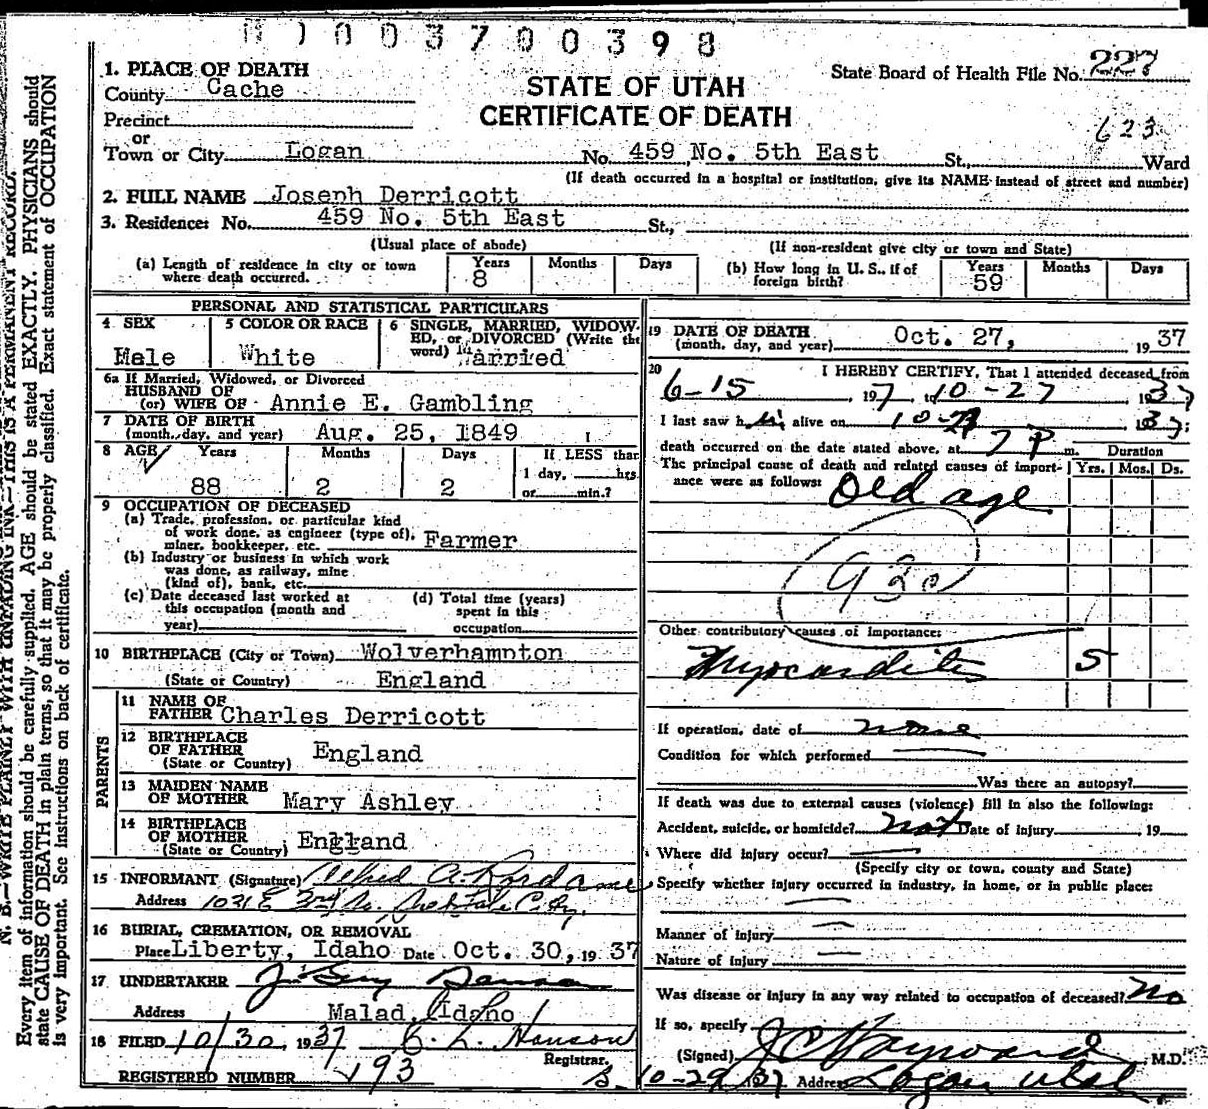 0 0 3 7 0 0 3 9 8
1. PLACE OF DEATH
County Cache
STATE OF UTAH
CERTIFICATE OF DEATH
State Board of Health File No. 227
Precinct
or
Town or City Logan No. 459 No. 5th East St., Ward
623
(If death occurred in a hospital or institution, give its NAME instead of street and number)
2. FULL NAME Joseph Derricott
3. Residence: No. 459 No. 5th East St.,
(Usual place of abode) (If non-resident give city or town and State)
(a) Length of residence in city or town where death occurred. Years 8 Months Days
(b) How long in U. S., if of foreign birth? Years 59 Months Days
PERSONAL AND STATISTICAL PARTICULARS
4 SEX Male
5 COLOR OR RACE White
6 SINGLE, MARRIED, WIDOWED, or DIVORCED (Write the word) Married
6a If Married, Widowed, or Divorced
HUSBAND OF
(or) WIFE OF Annie E. Gambling
7 DATE OF BIRTH
(month, day, and year) Aug. 25, 1849
8 AGE Years 88 Months 2 Days 2 If LESS than 1 day, hrs. or min.?
9 OCCUPATION OF DECEASED
(a) Trade, profession, or particular kind
of work done, as engineer (type of),
miner, bookkeeper, etc. Farmer
(b) Industry or business in which work
was done, as railway, mine
(kind of), bank, etc.
(c) Date deceased last worked at
this occupation (month and
year)
(d) Total time (years)
spent in this
occupation
10 BIRTHPLACE (City or Town) Wolverhamnton
(State or Country) England
PARENTS
11 NAME OF
FATHER Charles Derricott
12 BIRTHPLACE
OF FATHER England
(State or Country)
13 MAIDEN NAME
OF MOTHER Mary Ashley
14 BIRTHPLACE
OF MOTHER
(State or Country) England
15 INFORMANT (Signature) Alfred A.
Address 1031 E 3rd So. City
16 BURIAL, CREMATION, OR REMOVAL
Place Liberty, Idaho Date Oct. 30, 1937
17 UNDERTAKER
Address Malad, Idaho
18 FILED 10/30, 1937 C. L. Hanson
Registrar.
REGISTERED NUMBER 193
19 DATE OF DEATH
(month, day, and year) Oct. 27, 1937
20 I HEREBY CERTIFY, That I attended deceased from
6-15 1937, to 10-27 1937
I last saw him alive on 10-27 1937;
death occurred on the date stated above, at 7 P m. Duration
The principal cause of death and related causes of importance were as follows: Yrs. Mos. Ds.
Old age
930
Other contributory causes of importance:
Myocarditis 5
If operation, date of none
Condition for which performed
Was there an autopsy?
If death was due to external causes (violence) fill in also the following:
Accident, suicide, or homicide? not Date of injury , 19
Where did injury occur?
(Specify city or town, county and State)
Specify whether injury occurred in industry, in home, or in public place:
Manner of injury
Nature of injury
Was disease or injury in any way related to occupation of deceased? No
If so, specify
(Signed) J C Hayward, M.D.
10-29 1937 Address Logan Utah.
N. B.—WRITE PLAINLY WITH UNFADING INK—THIS IS A PERMANENT RECORD.
Every item of information should be carefully supplied. AGE should be stated EXACTLY. PHYSICIANS should
state CAUSE OF DEATH in plain terms, so that it may be properly classified. Exact statement of OCCUPATION
is very important. See instructions on back of certificate.